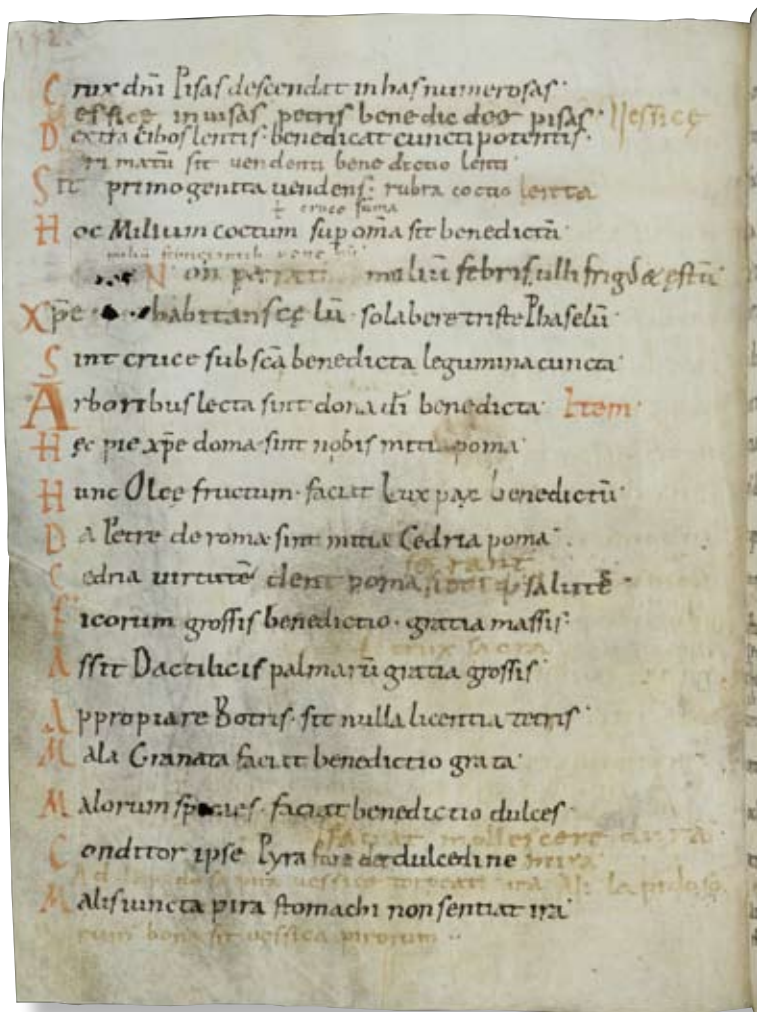 Crux dn̄i Pisas descendat in has numerosas
essicę inuisas petris benedic deꝰ pisas Uessicę
Dextra cibos lentis benedicat cunctipotentis
ri matū sit uendenti benedictio lenti
Sit primogenita uendens rubra coctio lenta
÷ cruce sūma
Hoc Milium coctum sup om̄a sit benedictū
Non miliū febris ulli frig& ęstū
Xp̄e habitans cęlū solabere triste Phaselū
Sint cruce sub scā benedicta legumina cuncta
Arboribus lecta sint dona dī benedicta Item
Hęc pie xp̄e doma sint nobis mitia poma
Hunc Oleę fructum faciat Lux pax benedictū
Da Petre de roma sint mitia Cedria poma
Cedria uirtutē dent poma salutē
Ficorum grossis benedictio gratia massis
crux sacra
Assit Dactilicis palmarū gratia grossis
Appropiare Botris sit nulla licentia tetris
Mala Granata faciat benedictio grata
Malorum species faciat benedictio dulces
faciat mollescere dura
Conditor ipse Pyra dulcedine mira
Malis iuncta pira stomachi non sentiat irā
rum bona sit uessica pirorum